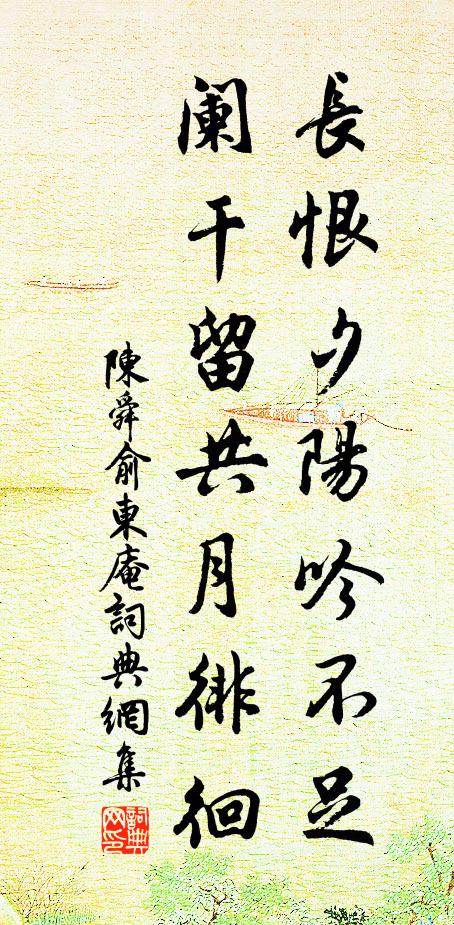 長恨夕陽吟不足
阑干留共月徘徊
陳舜俞東庵詞典網集
詞典网印